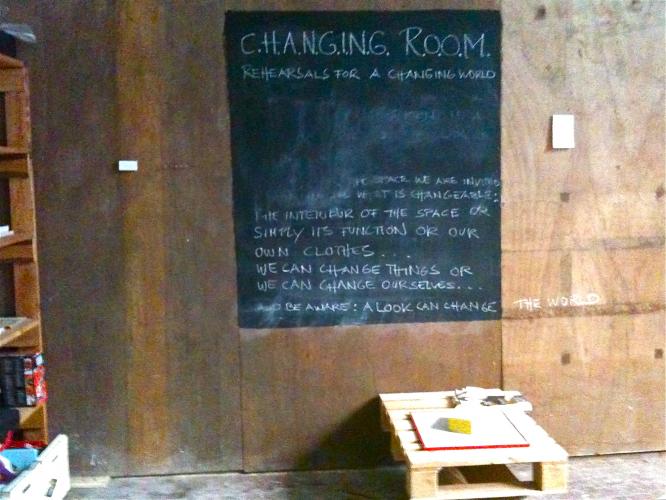 C.H.A.N.G.I.N.G. R.O.O.M.
REHEARSALS FOR A CHANGING WORLD
SPACE WE ARE INVITED
IS CHANGEABLE:
THE INTERIEUR OF THE SPACE OR
SIMPLY ITS FUNCTION OR OUR
OWN CLOTHES...
WE CAN CHANGE THINGS OR
WE CAN CHANGE OURSELVES...
AND BE AWARE: A LOOK CAN CHANGE THE WORLD